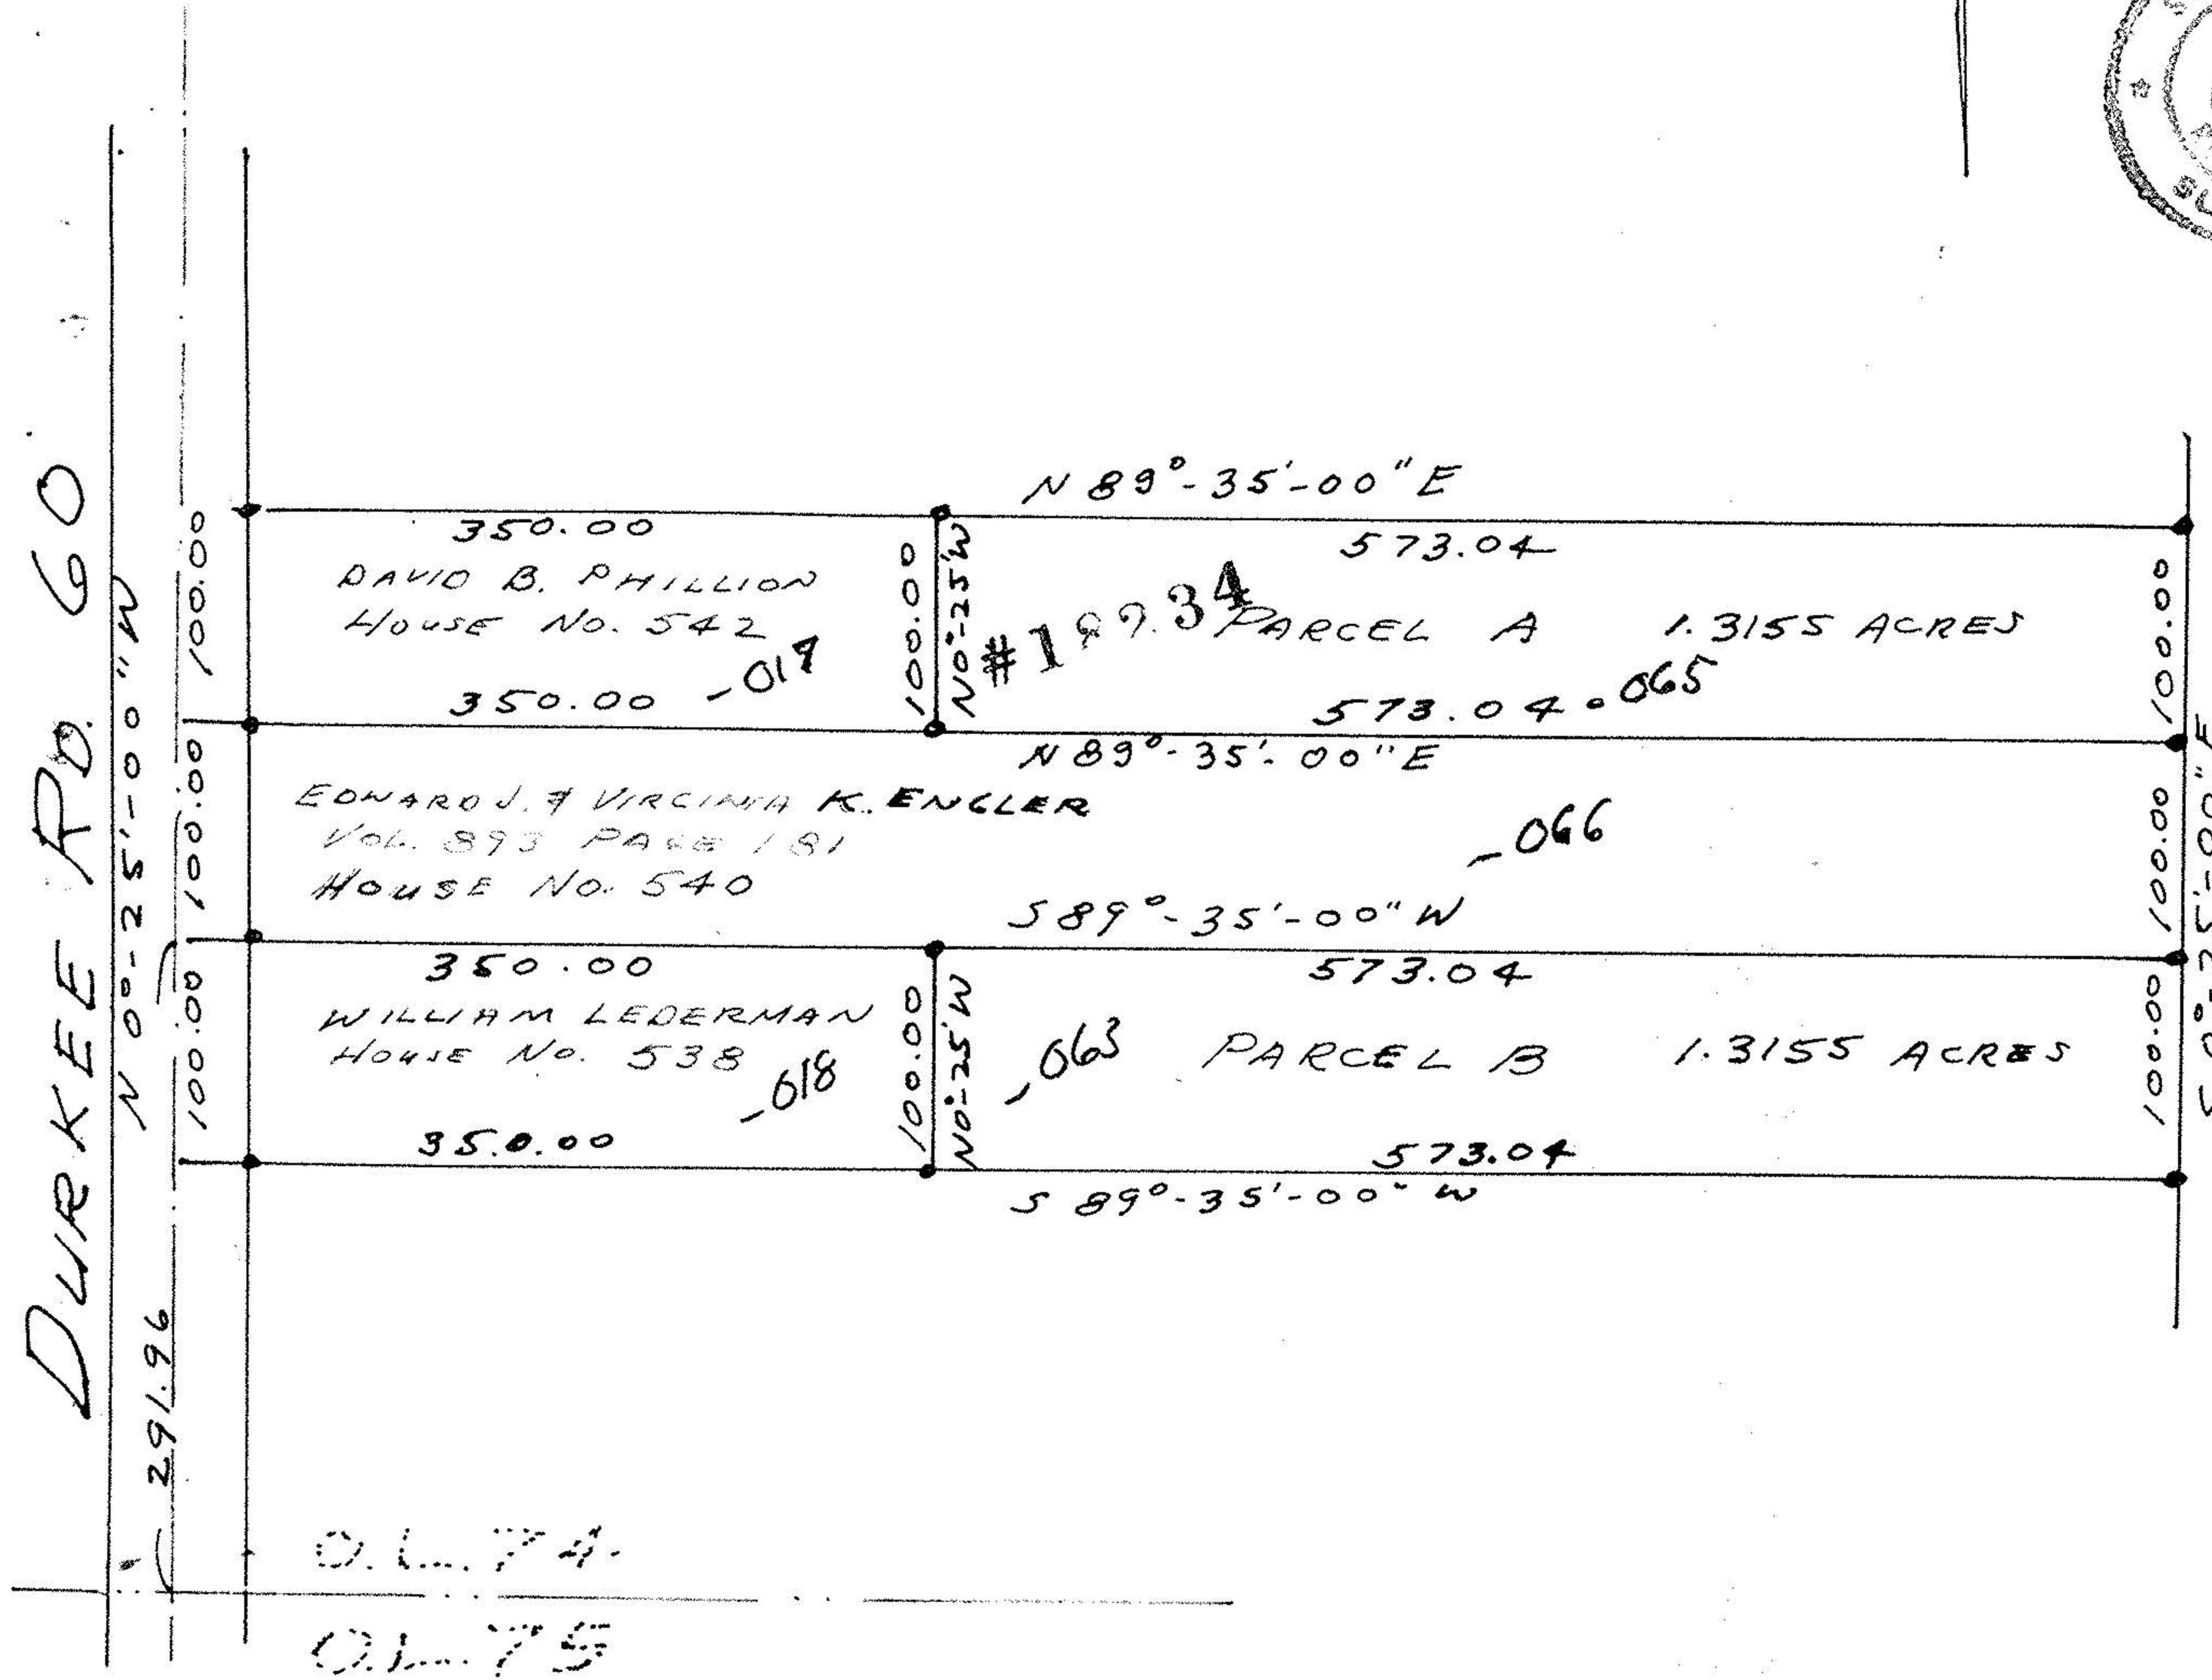 DURKEE RD. 60
N 0°-25'-00"W
100.00
100.00
100.00
291.96
N 89°-35'-00"E
350.00
573.04
DAVID B. PHILLION
HOUSE NO. 542
100.00
N0°-25'W
PARCEL A 1.3155 ACRES
100.00
350.00
573.04
-065
N 89°-35'-00"E
EDWARD J. & VIRGINIA K. ENGLER
VOL. 893 PAGE 181
HOUSE NO. 540
-066
100.00
S 89°-35'-00" W
350.00
573.04
WILLIAM LEDERMAN
HOUSE NO. 538
-018
100.00
N0°-25'W
-063
PARCEL B 1.3155 ACRES
100.00
350.00
573.04
S 89°-35'-00" W
S 0°-25'-00"E
O.L. 74
O.L. 75